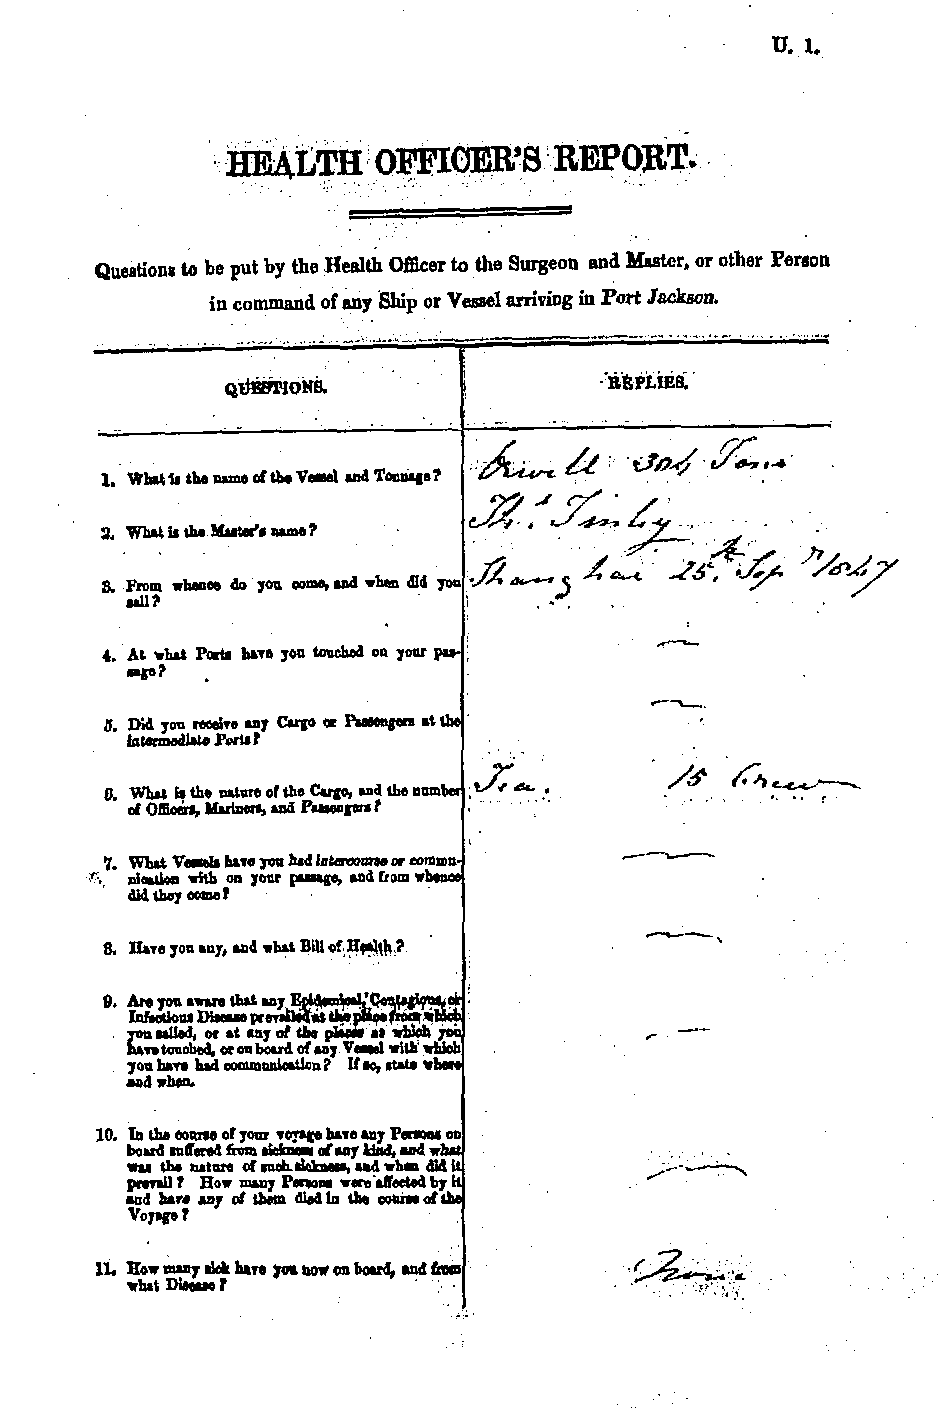 U. 1.
HEALTH OFFICER'S REPORT.
Questions to be put by the Health Officer to the Surgeon and Master, or other Person
in command of any Ship or Vessel arriving in Port Jackson.
QUESTIONS.
REPLIES.
1. What is the name of the Vessel and Tonnage?
Orwell 304 Tons
2. What is the Master's name?
Thos. Tinley
3. From whence do you come, and when did you
sail?
Shanghai 25th Sepr 1847
4. At what Ports have you touched on your pas-
sage?
5. Did you receive any Cargo or Passengers at the
intermediate Ports?
6. What is the nature of the Cargo, and the number
of Officers, Mariners, and Passengers?
Tea. 15 Crew
7. What Vessels have you had intercourse or commu-
nication with on your passage, and from whence
did they come?
8. Have you any, and what Bill of Health?
9. Are you aware that any Epidemical, Contagious, or
Infectious Disease prevailed at the place from which
you sailed, or at any of the places at which you
have touched, or on board of any Vessel with which
you have had communication? If so, state where
and when.
10. In the course of your voyage have any Persons on
board suffered from sickness of any kind, and what
was the nature of such sickness, and when did it
prevail? How many Persons were affected by it
and have any of them died in the course of the
Voyage?
11. How many sick have you now on board, and from
what Disease?
None